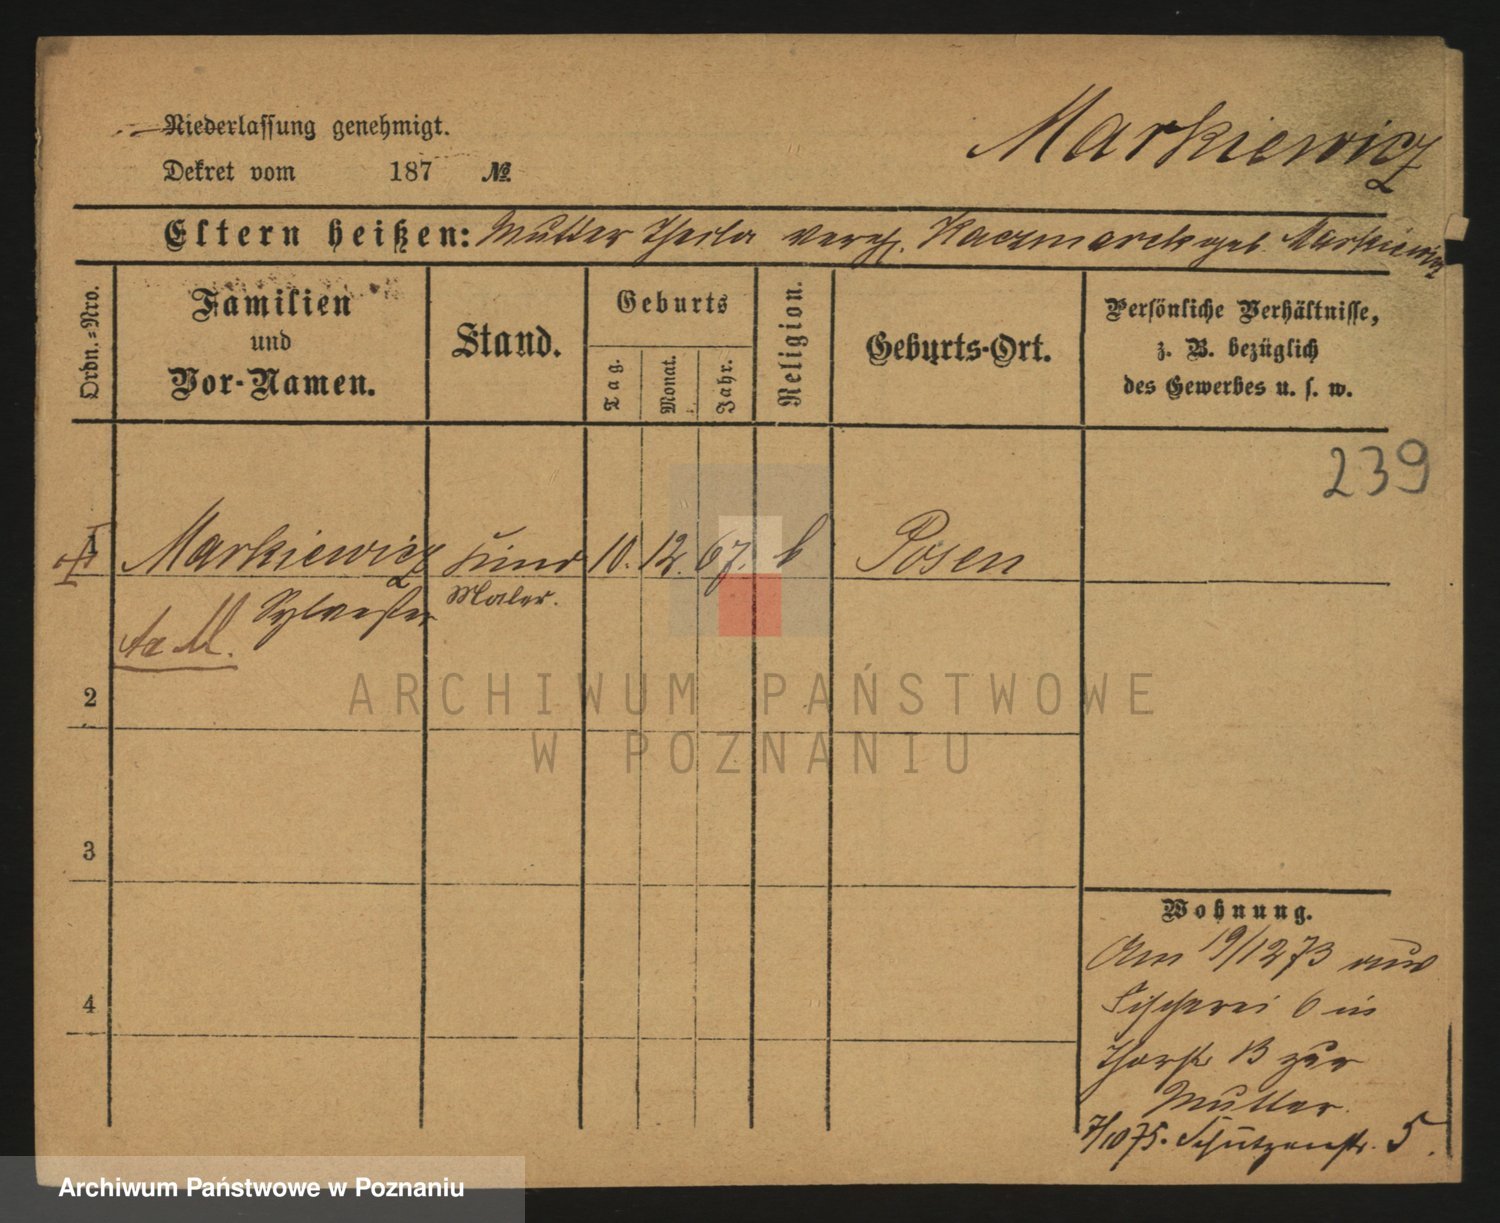 Niederlassung genehmigt.
Dekret vom 187 №
Markiewicz
Eltern heißen: Mutter Thecla verh. Kaczmarek geb. Markiewicz
Ordn.-Nro.
Familien
und
Vor-Namen.
Stand.
Geburts
Tag.
Monat.
Jahr.
Religion.
Geburts-Ort.
Persönliche Verhältnisse,
z. B. bezüglich
des Gewerbes u. s. w.
239
1 Markiewicz Kind 10. 12. 67. k Posen
Sylvester Maler.
2
3
4
Wohnung.
Am 19/12 73 aus
Fischerei 6 in
Thorstr 13 zur
Mutter.
7/10 75. Schützenstr. 5.
ARCHIWUM PAŃSTWOWE
W POZNANIU
Archiwum Państwowe w Poznaniu